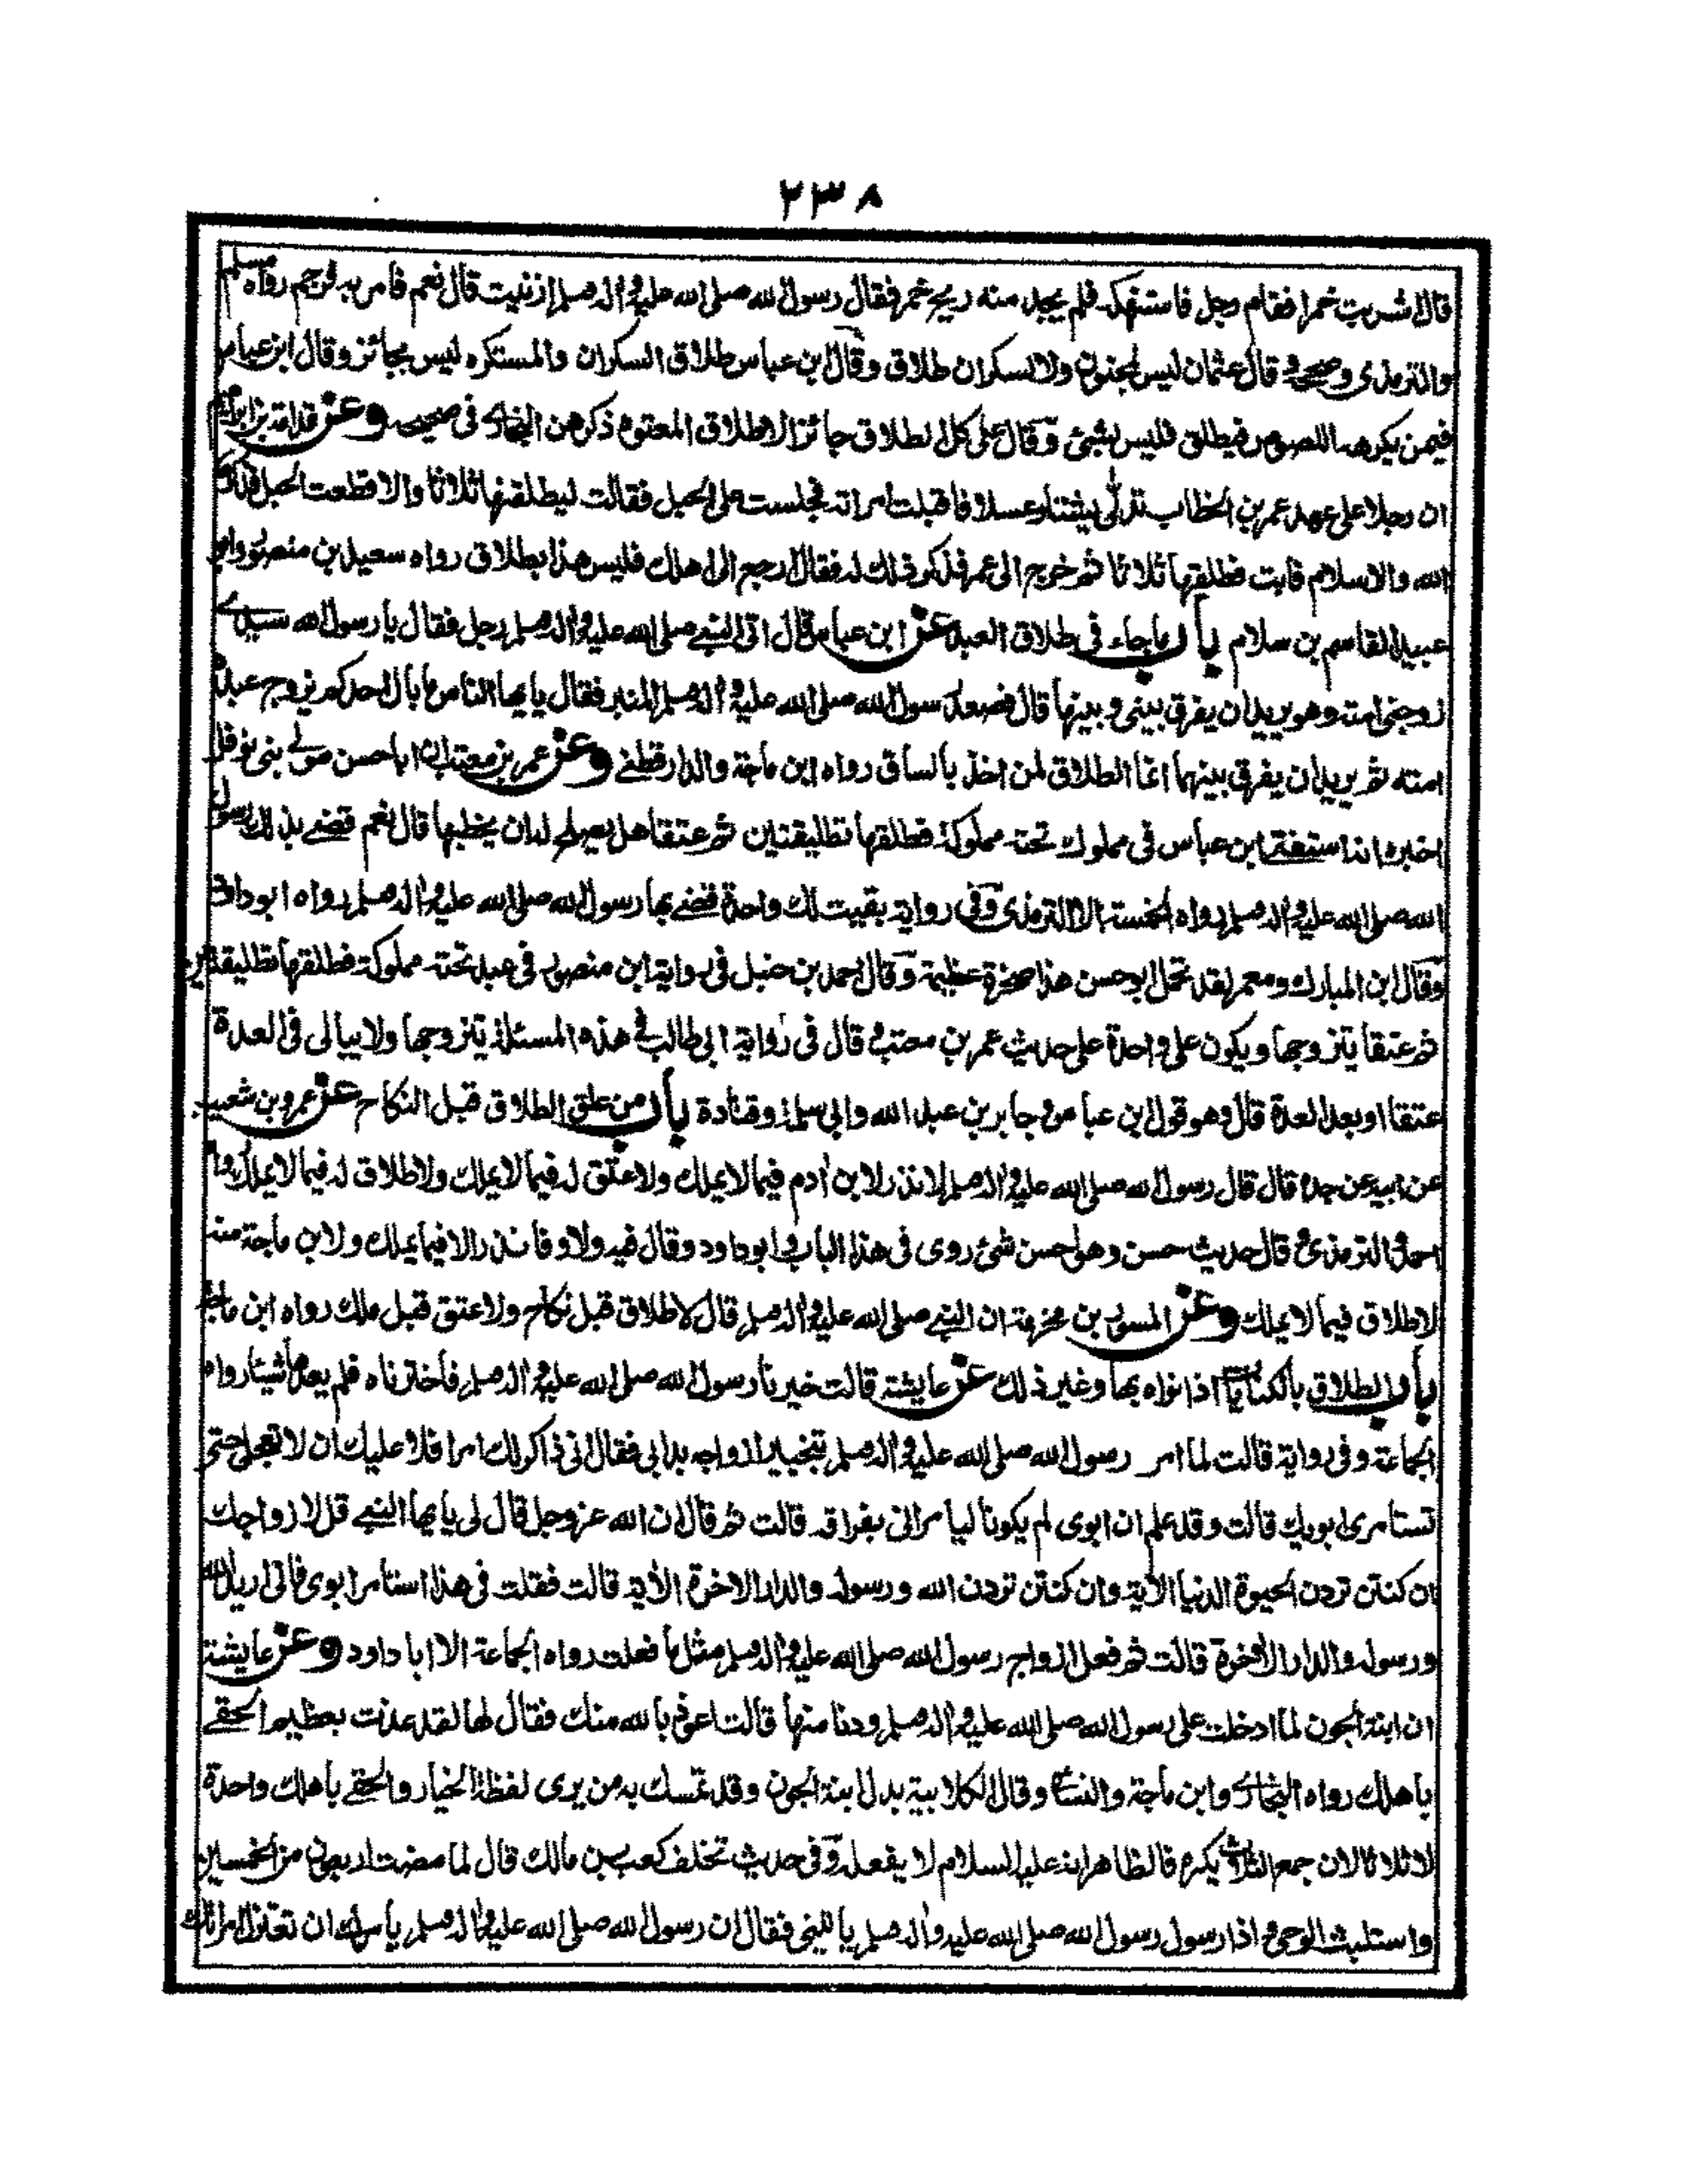 ٢٣٨
قال اشربت خمرا فقام رجل فاستنهكه فلم يجد منه ريح خمر فقال رسول الله صلى الله عليه واله وسلم ازنيت قال نعم فامر به فرجم رواه مسلم
والترمذى وصححه وقال عثمان ليس لمجنون ولا لسكران طلاق وقال ابن عباس طلاق السكران والمستكره ليس بجائز وقال ابن عباس
فيمن يكرهه اللصوص فيطلق فليس بشئ وقال على كل الطلاق جائز الا طلاق المعتوه ذكرهن البخارى فى صحيحه وعن قدامة بن ابراهيم
ان رجلا على عهد عمر بن الخطاب تدلى يشتار عسلا فاقبلت امراته فجلست على الحبل فقالت ليطلقنها ثلاثا والا قطعت الحبل فذكرها
الله والاسلام فابت فطلقها ثلاثا ثم خرج الى عمر فذكر ذلك له فقال ارجع الى اهلك فليس هذا بطلاق رواه سعيد بن منصور وابو
عبيد القاسم بن سلام باب ما جاء فى طلاق العبد عن ابن عباس قال اتى النبى صلى الله عليه واله وسلم رجل فقال يا رسول الله سيدى
زوجنى امته وهو يريد ان يفرق بينى وبينها قال فصعد رسول الله صلى الله عليه واله وسلم المنبر فقال يايها الناس ما بال احدكم يزوج عبده
امته ثم يريد ان يفرق بينهما انما الطلاق لمن اخذ بالساق رواه ابن ماجة والدارقطنى وعن عمر بن معتب ان ابا حسن مولى بنى نوفل
اخبره انه استفتى ابن عباس فى مملوك تحته مملوكة فطلقها تطليقتين ثم عتقا هل يصلح له ان يخطبها قال نعم قضى بذلك رسول
الله صلى الله عليه واله وسلم رواه الخمسة الا الترمذى وفى رواية بقيت لك واحدة قضى بها رسول الله صلى الله عليه واله وسلم رواه ابو داود
وقال ابن المبارك ومعمر لقد تحمل ابو حسن هذا صخرة عظيمة وقال احمد بن حنبل فى رواية ابن منصور فى عبد تحته مملوكة فطلقها تطليقتين
ثم عتقا يتزوجها ويكون على واحدة على حديث عمر بن معتب وقال فى رواية ابى طالب فى هذه المسئلة يتزوجها ولا يبالى فى العدة
عتقا او بعد العدة قال وهو قول ابن عباس وجابر بن عبد الله وابى سلمة وقتادة باب من علق الطلاق قبل النكاح عن عمرو بن شعيب
عن ابيه عن جده قال قال رسول الله صلى الله عليه واله وسلم لا نذر لابن ادم فيما لا يملك ولا عتق له فيما لا يملك ولا طلاق له فيما لا يملك رواه
احمد والترمذى وقال حديث حسن وهو احسن شئ روى فى هذا الباب وابو داود وقال فيه ولا وفا نذر الا فيما يملك ولابن ماجة منه
لا طلاق فيما لا يملك وعن المسور بن مخرمة ان النبى صلى الله عليه واله وسلم قال لا طلاق قبل نكاح ولا عتق قبل ملك رواه ابن ماجة
باب الطلاق بالكنايات اذا نواه بها وغير ذلك عن عايشة قالت خيرنا رسول الله صلى الله عليه واله وسلم فاخترناه فلم يعدها شيئا رواه
الجماعة وفى رواية قالت لما امر رسول الله صلى الله عليه واله وسلم بتخيير ازواجه بدا بى فقال انى ذاكر لك امرا فلا عليك ان لا تعجلى حتى
تستامرى ابويك قالت وقد علم ان ابوى لم يكونا ليامرانى بفراقه قالت ثم قال ان الله عز وجل قال لى يايها النبى قل لازواجك
ان كنتن تردن الحيوة الدنيا الأية وان كنتن تردن الله ورسوله والدار الاخرة الأية قالت فقلت فى هذا استامر ابوى فانى اريد الله
ورسوله والدار الاخرة قالت ثم فعل ازواج رسول الله صلى الله عليه واله وسلم مثل ما فعلت رواه الجماعة الا ابا داود وعن عايشة
ان ابنة الجون لما ادخلت على رسول الله صلى الله عليه واله وسلم ودنا منها قالت اعوذ بالله منك فقال لها لقد عذت بعظيم الحقى
باهلك رواه البخارى وابن ماجة والنسائى وقال الكلابية بدل ابنة الجون وقد تمسك به من يرى لفظة الخيار والحقى باهلك واحدة
لا ثلاثا لان جمع الثلاث يكره فالظاهر انه عليه السلام لا يفعله وفى حديث تخلف كعب بن مالك قال لما مضت اربعون من الخمسين
واستلبث الوحى واذا رسول رسول الله صلى الله عليه واله وسلم ياتينى فقال ان رسول الله صلى الله عليه واله وسلم يأمرك ان تعتزل امراتك